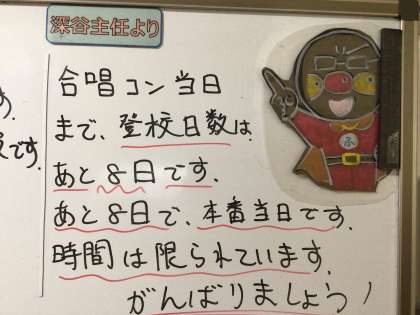 深谷主任より
合唱コン当日
まで、登校日数は
あと8日です。
あと8日で、本番当日です。
時間は限られています。
がんばりましょう!
す。
です。